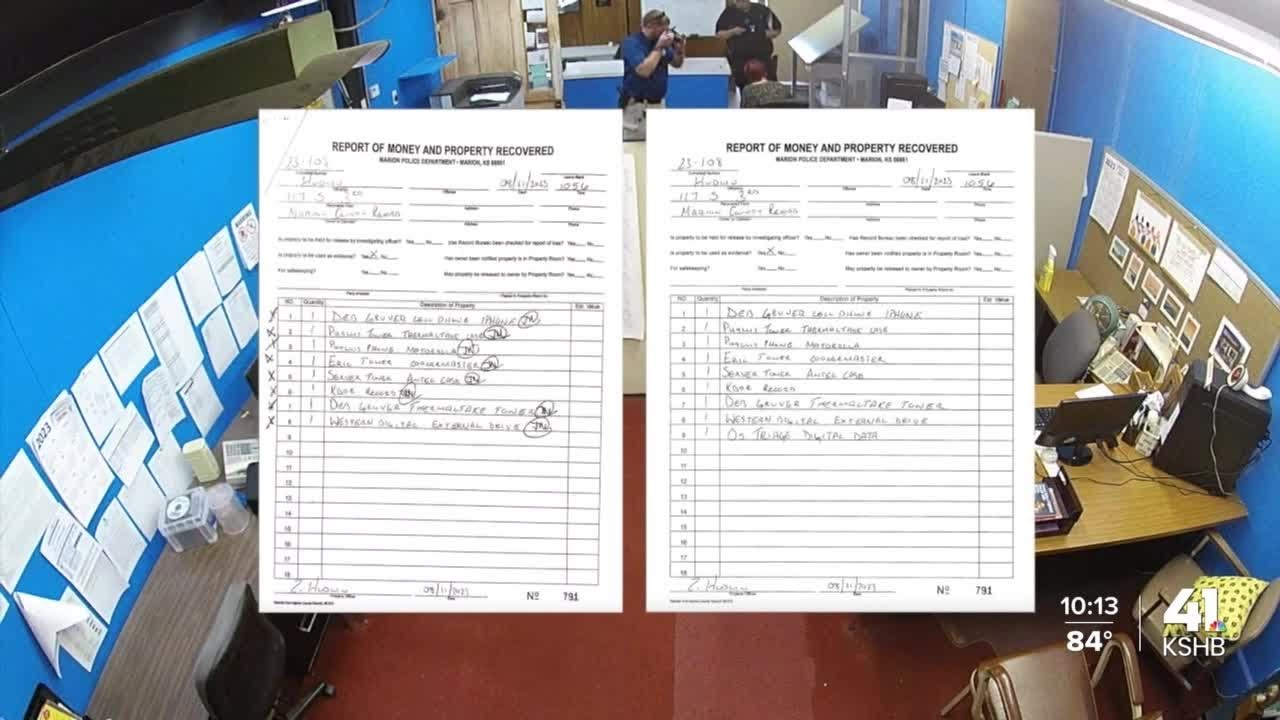 REPORT OF MONEY AND PROPERTY RECOVERED
MARION POLICE DEPARTMENT • MARION, KS 66861
23-108
08/11/2023 1056
117 S 3RD
MARION COUNTY RECORD
Is property to be held for release by investigating officer? Yes No Has Record Bureau been checked for report of loss? Yes No
Is property to be used as evidence? Yes X No Has owner been notified property is in Property Room? Yes No
For safekeeping? Yes No May property be released to owner by Property Room? Yes No
NO. Quantity Description of Property Est. Value
1 1 DEB GRUVER CELL PHONE IPHONE
2 1 PHYLLIS TOWER THERMALTAKE CASE
3 1 PHYLLIS PHONE MOTOROLA
4 1 ERIC TOWER COOLERMASTER
5 1 SERVER TOWER ANTEC CASE
6 1 RECORD
7 1 DEB GRUVER THERMALTAKE TOWER
8 1 WESTERN DIGITAL EXTERNAL DRIVE
9
10
11
12
13
14
15
16
17
18
08/11/2023
Nº 791
REPORT OF MONEY AND PROPERTY RECOVERED
MARION POLICE DEPARTMENT • MARION, KS 66861
23-108
08/11/2023 1056
117 S 3RD
MARION COUNTY RECORD
Is property to be held for release by investigating officer? Yes No Has Record Bureau been checked for report of loss? Yes No
Is property to be used as evidence? Yes X No Has owner been notified property is in Property Room? Yes No
For safekeeping? Yes No May property be released to owner by Property Room? Yes No
NO. Quantity Description of Property Est. Value
1 1 DEB GRUVER CELL PHONE IPHONE
2 1 PHYLLIS TOWER THERMALTAKE CASE
3 1 PHYLLIS PHONE MOTOROLA
4 1 ERIC TOWER COOLERMASTER
5 1 SERVER TOWER ANTEC CASE
6 1 RECORD
7 1 DEB GRUVER THERMALTAKE TOWER
8 1 WESTERN DIGITAL EXTERNAL DRIVE
9 1 OS TRIAGE DIGITAL DATA
10
11
12
13
14
15
16
17
18
08/11/2023
Nº 791
2023
2023
10:13
84°
41
KSHB